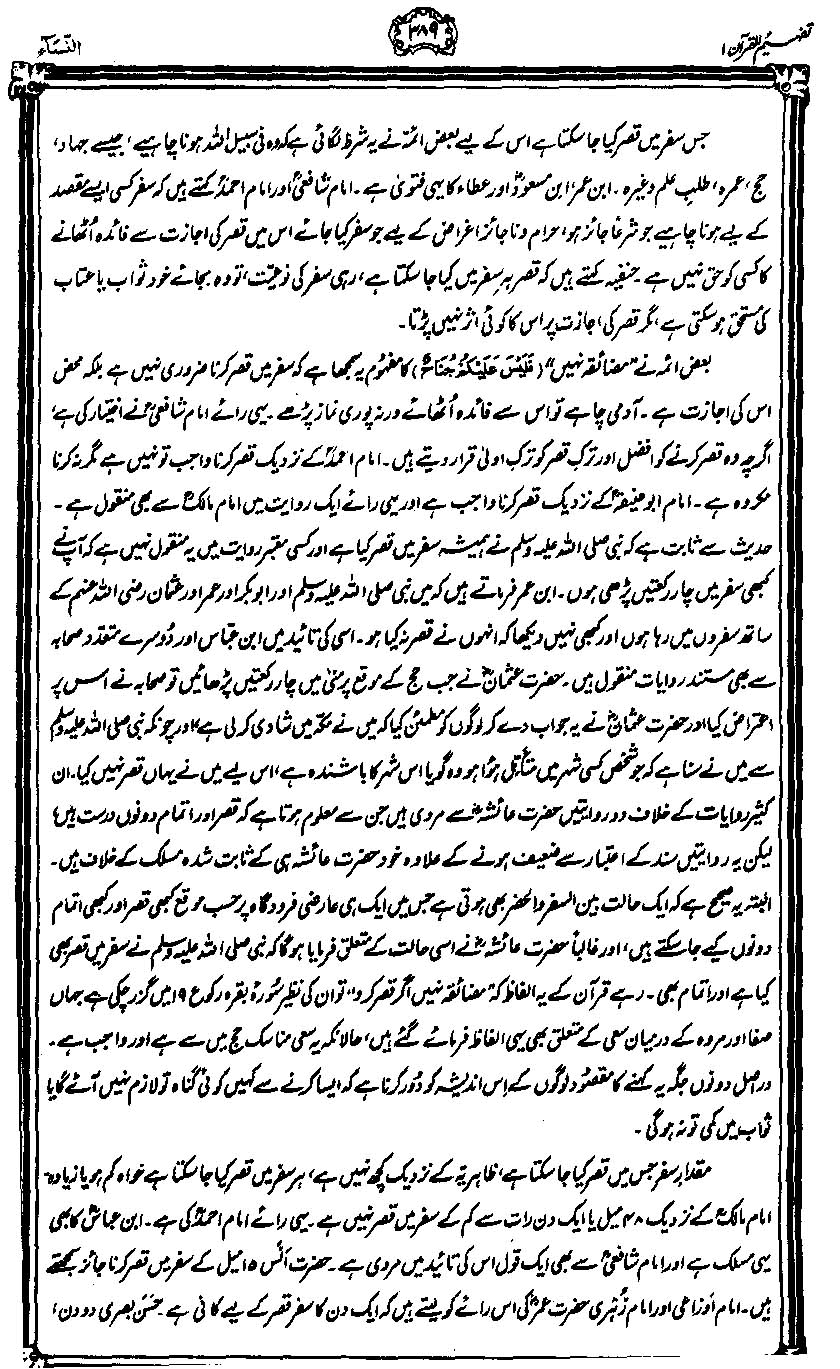 تفہیم القرآن ۱
۳۸۹
النسآء
جس سفر میں قصر کیا جا سکتا ہے اس کے لیے بعض ائمہ نے یہ شرط لگائی ہے کہ وہ فی سبیل اللہ ہونا چاہیے، جیسے جہاد،
حج، عمرہ، طلبِ علم وغیرہ۔ ابن عمر، ابن مسعودؓ اور عطاء کا یہی فتویٰ ہے۔ امام شافعیؒ اور امام احمدؒ کہتے ہیں کہ سفر کسی ایسے مقصد
کے لیے ہونا چاہیے جو شرعاً جائز ہو، حرام و ناجائز اغراض کے لیے جو سفر کیا جائے اس میں قصر کی اجازت سے فائدہ اُٹھانے
کا کسی کو حق نہیں ہے۔ حنفیہ کہتے ہیں کہ قصر ہر سفر میں کیا جا سکتا ہے، رہی سفر کی نوعیت، تو وہ بجائے خود ثواب یا عتاب
کی مستحق ہو سکتی ہے، مگر قصر کی اجازت پر اس کا کوئی اثر نہیں پڑتا۔
بعض ائمہ نے ”مضائقہ نہیں“ (فَلَيْسَ عَلَيْكُمْ جُنَاحٌ) کا مفہوم یہ سمجھا ہے کہ سفر میں قصر کرنا ضروری نہیں ہے بلکہ محض
اس کی اجازت ہے۔ آدمی چاہے تو اس سے فائدہ اُٹھائے ورنہ پوری نماز پڑھے۔ یہی رائے امام شافعیؒ نے اختیار کی ہے،
اگرچہ وہ قصر کرنے کو افضل اور ترکِ قصر کو ترکِ اولیٰ قرار دیتے ہیں۔ امام احمدؒ کے نزدیک قصر کرنا واجب تو نہیں ہے مگر نہ کرنا
مکروہ ہے۔ امام ابو حنیفہؒ کے نزدیک قصر کرنا واجب ہے اور یہی رائے ایک روایت میں امام مالکؒ سے بھی منقول ہے۔
حدیث سے ثابت ہے کہ نبی صلی اللہ علیہ وسلم نے ہمیشہ سفر میں قصر کیا ہے اور کسی معتبر روایت میں یہ منقول نہیں ہے کہ آپ نے
کبھی سفر میں چار رکعتیں پڑھی ہوں۔ ابن عمر فرماتے ہیں کہ میں نبی صلی اللہ علیہ وسلم اور ابوبکر اور عمر اور عثمان رضی اللہ عنہم کے
ساتھ سفروں میں رہا ہوں اور کبھی نہیں دیکھا کہ انہوں نے قصر نہ کیا ہو۔ اسی کی تائید میں ابن عباس اور دُوسرے متعدد صحابہ
سے بھی مستند روایات منقول ہیں۔ حضرت عثمانؓ نے جب حج کے موقع پر منیٰ میں چار رکعتیں پڑھائیں تو صحابہ نے اس پر
اعتراض کیا اور حضرت عثمانؓ نے یہ جواب دے کر لوگوں کو مطمئن کیا کہ میں نے مکّہ میں شادی کر لی ہے، اور چونکہ نبی صلی اللہ علیہ وسلم
سے میں نے سنا ہے کہ جو شخص کسی شہر میں متأہّل ہوا ہو وہ گویا اس شہر کا باشندہ ہے، اس لیے میں نے یہاں قصر نہیں کیا۔ ان
کثیر روایات کے خلاف دو روایتیں حضرت عائشہؓ سے مروی ہیں جن سے معلوم ہوتا ہے کہ قصر اور اتمام دونوں درست ہیں،
لیکن یہ روایتیں سند کے اعتبار سے ضعیف ہونے کے علاوہ خود حضرت عائشہ ہی کے ثابت شدہ مسلک کے خلاف ہیں۔
البتہ یہ صحیح ہے کہ ایک حالت بین السفر والحضر بھی ہوتی ہے جس میں ایک ہی عارضی فرودگاہ پر حسبِ موقع کبھی قصر اور کبھی اتمام
دونوں کیے جا سکتے ہیں، اور غالباً حضرت عائشہؓ نے اسی حالت کے متعلق فرمایا ہوگا کہ نبی صلی اللہ علیہ وسلم نے سفر میں قصر بھی
کیا ہے اور اتمام بھی۔ رہے قرآن کے یہ الفاظ کہ ”مضائقہ نہیں اگر قصر کرو“ تو ان کی نظیر سُورۂ بقرہ رکوع ۱۹ میں گزر چکی ہے جہاں
صفا اور مروہ کے درمیان سعی کے متعلق بھی یہی الفاظ فرمائے گئے ہیں، حالانکہ یہ سعی مناسکِ حج میں سے ہے اور واجب ہے۔
دراصل دونوں جگہ یہ کہنے کا مقصُود لوگوں کے اِس اندیشہ کو دُور کرنا ہے کہ ایسا کرنے سے کہیں کوئی گناہ تو لازم نہیں آئے گا یا
ثواب میں کمی تو نہ ہوگی۔
مقدارِ سفر جس میں قصر کیا جا سکتا ہے، ظاہریّہ کے نزدیک کچھ نہیں ہے، ہر سفر میں قصر کیا جا سکتا ہے خواہ کم ہو یا زیادہ۔
امام مالکؒ کے نزدیک ۴۸ میل یا ایک دن رات سے کم کے سفر میں قصر نہیں ہے۔ یہی رائے امام احمدؒ کی ہے۔ ابن عباسؓ کا بھی
یہی مسلک ہے اور امام شافعیؒ سے بھی ایک قول اس کی تائید میں مروی ہے۔ حضرت انسؓ ۱۵ میل کے سفر میں قصر کرنا جائز سمجھتے
ہیں۔ امام اَوزاعی اور امام زُہری حضرت عمرؓ کی اس رائے کو لیتے ہیں کہ ایک دن کا سفر قصر کے لیے کافی ہے۔ حسَن بصری دو دن،